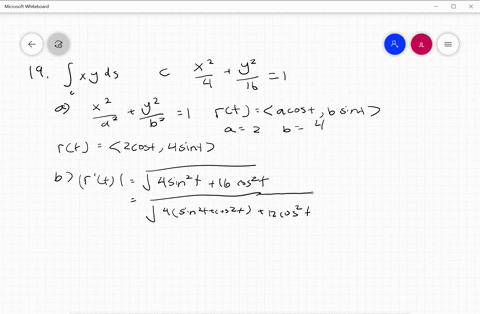 Microsoft Whiteboard
JL
19. ∫_c xy ds   C   x²/4 + y²/16 = 1
a) x²/a² + y²/b² = 1   r(t) = <a cost, b sint>
a = 2   b = 4
r(t) = <2cost, 4sint>
b) |r'(t)| = √(4sin²t + 16cos²t)
= √(4(sin²t+cos²t) + 12cos²t